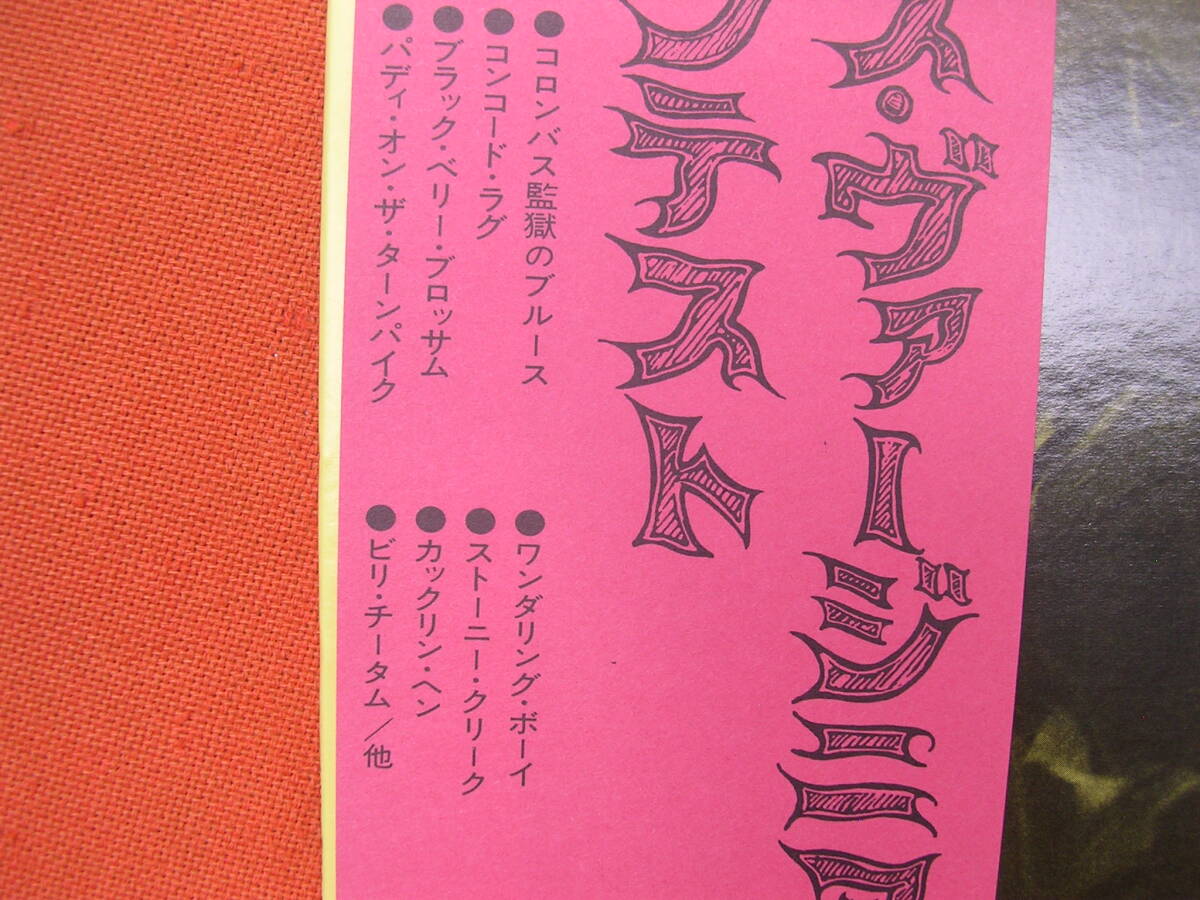 ス・ヴァージニア
ンテスト
●コロンバス監獄のブルース
●コンコード・ラグ
●ブラック・ベリー・ブロッサム
●パディ・オン・ザ・ターンパイク
●ワンダリング・ボーイ
●ストーニー・クリーク
●カックリン・ヘン
●ビリ・チータム／他